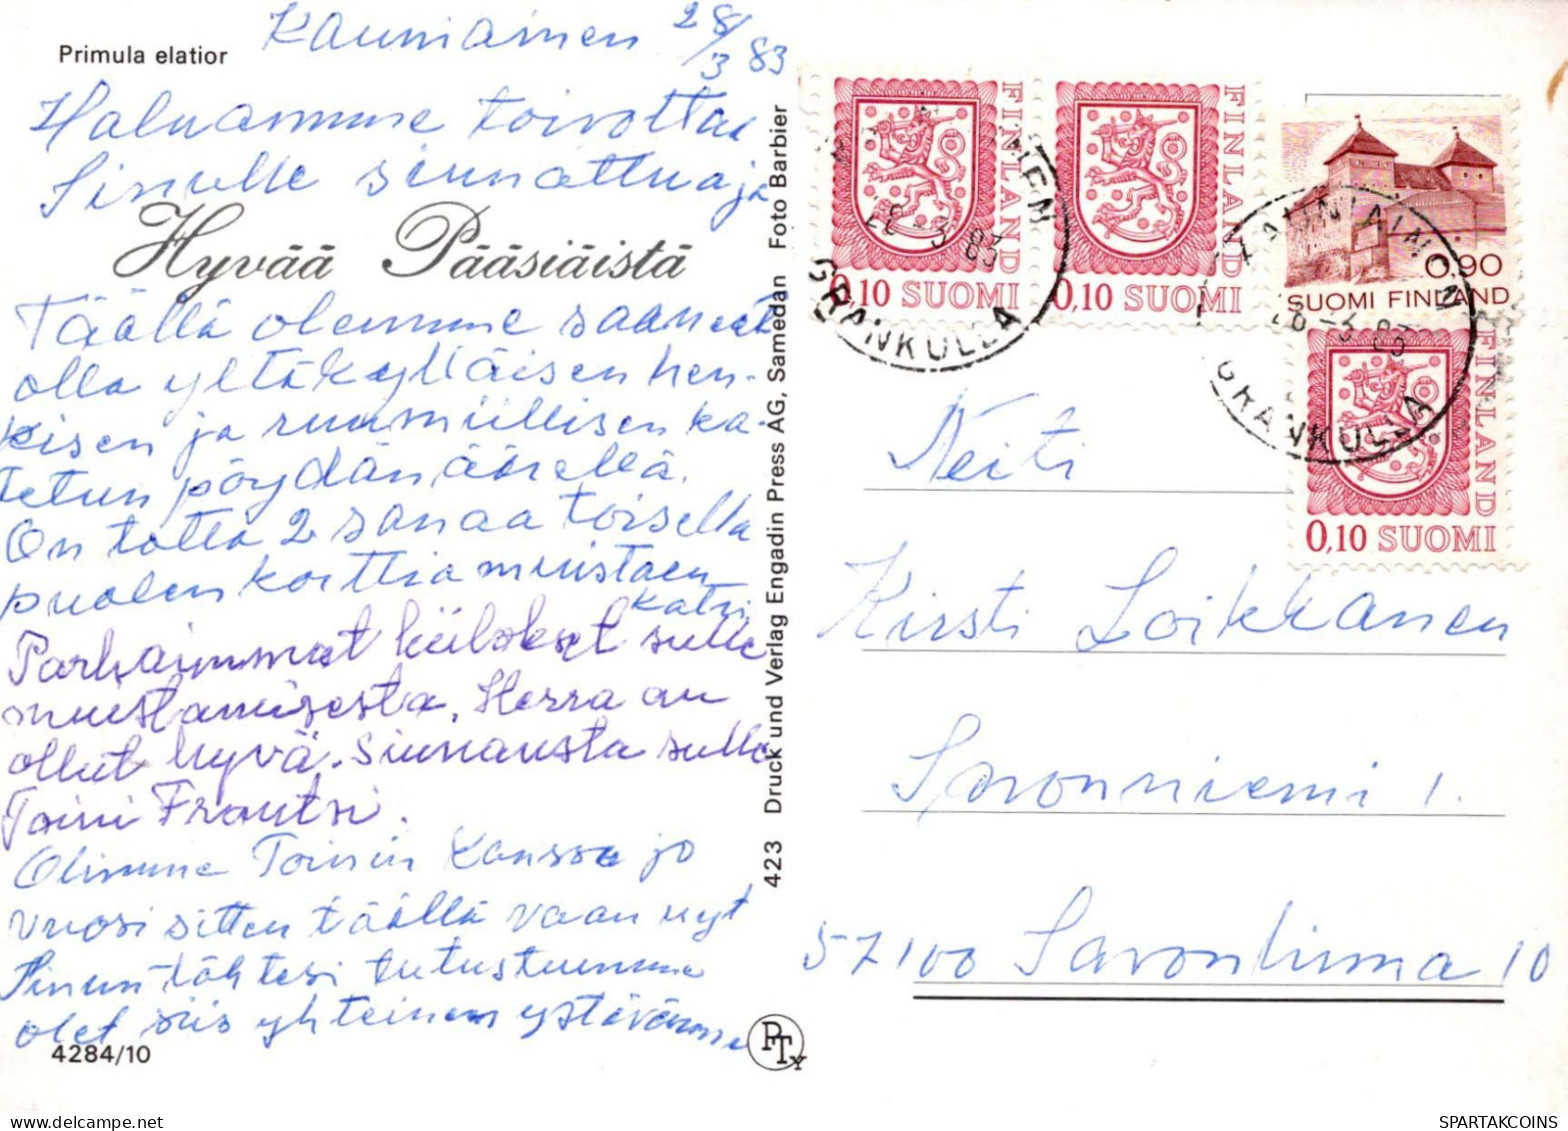 Primula elatior
Kauniainen 28/3 83
Haluamme toivottaa
Sinulle siunattua ja
Hyvää Pääsiäistä
Täällä olemme saaneet
olla yltäkylläisen hen-
kisen ja ruumiillisen ka-
tetun pöydän äärellä.
On tällä 2 sanaa toisella
puolen korttia muistaen
Katri
Parhaimmat kiitokset sulle
muistamisesta, Herra on
ollut hyvä. Siunausta sulle
Toini Frantsi.
Olimme Toinin kanssa jo
vuosi sitten täällä vaan nyt
Sinun tähtesi tutustuimme
olet siis yhteinen ystävämme
4284/10
423 Druck und Verlag Engadin Press AG, Samedan Foto Barbier
PTY
FINLAND
0,10 SUOMI
FINLAND
0,10 SUOMI
0,90
SUOMI FINLAND
FINLAND
0,10 SUOMI
GRANKULLA
KAUNIAINEN
GRANKULLA
Neiti
Kirsti Loikkanen
Savonniemi 1.
57100 Savonlinna 10
SPARTAKCOINS